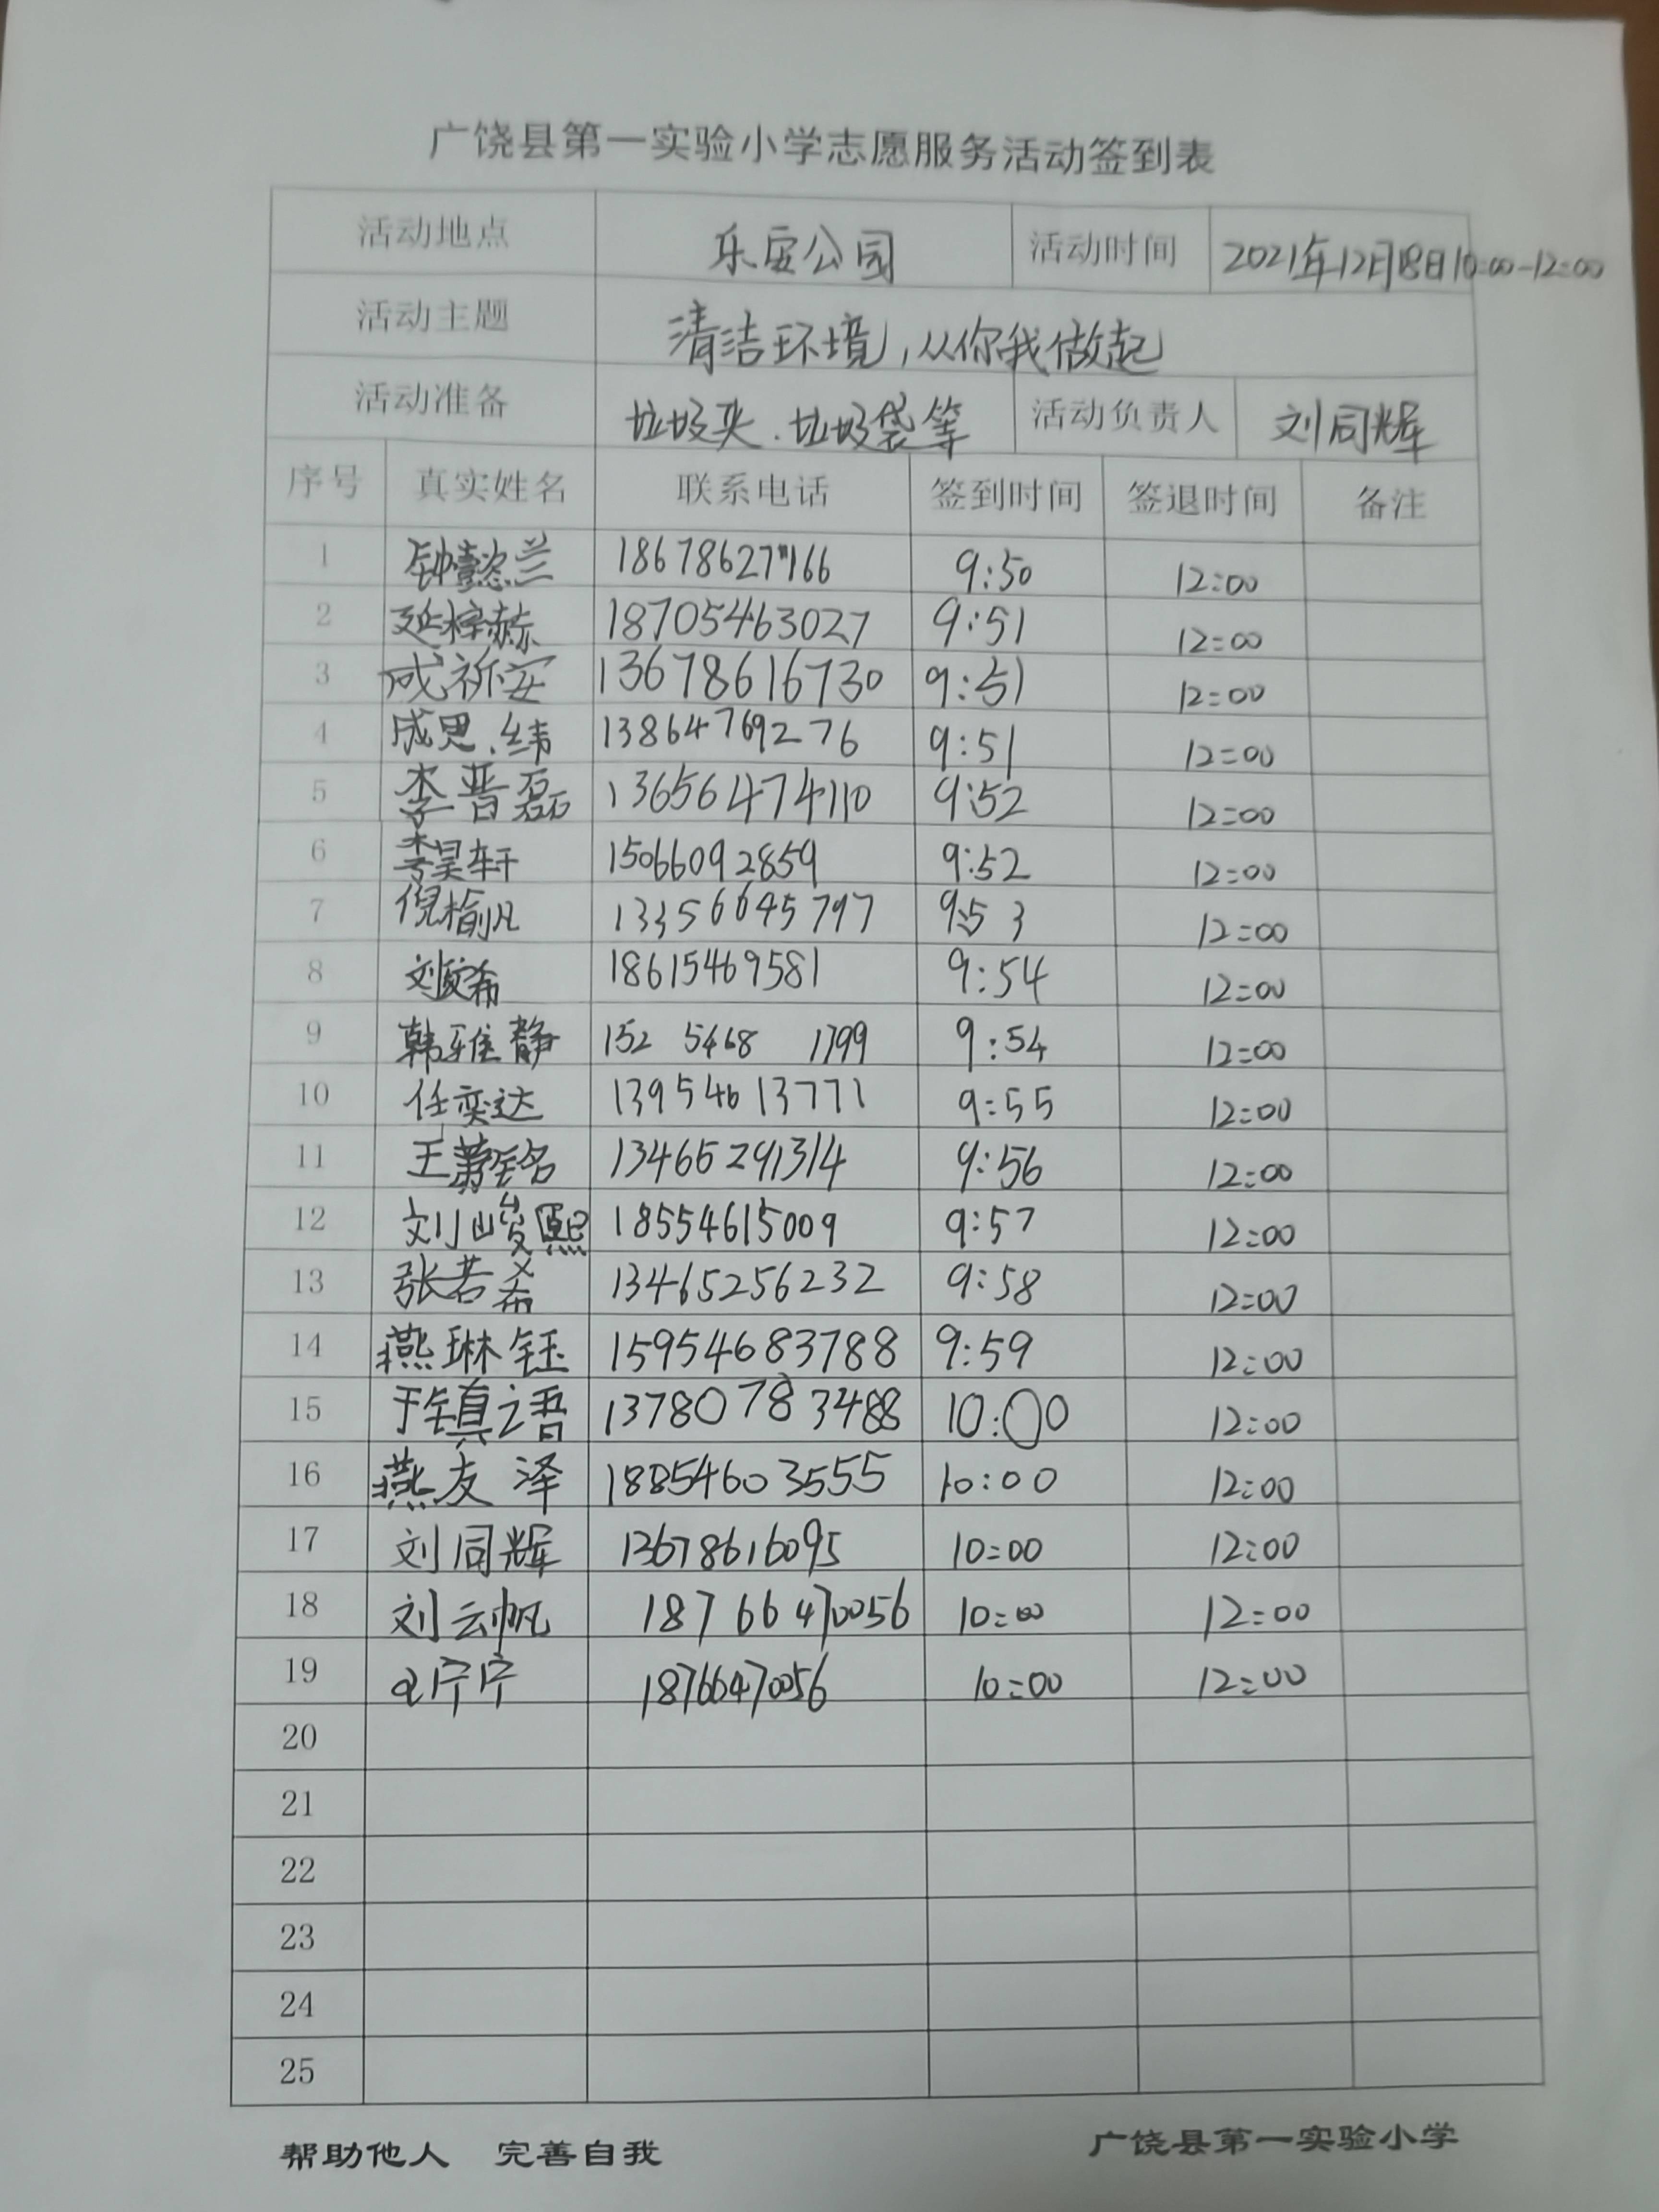 广饶县第一实验小学志愿服务活动签到表
活动地点 乐安公园 活动时间 2021年12月18日10:00-12:00
活动主题 清洁环境,从你我做起
活动准备 垃圾夹、垃圾袋等 活动负责人 刘同辉
序号 真实姓名 联系电话 签到时间 签退时间 备注
1 钟懿兰 9:50 12:00
2 延梓赫 18705463027 9:51 12:00
3 成祈安 13678616730 9:51 12:00
4 成思纬 13864769276 9:51 12:00
5 李晋磊 13656474110 9:52 12:00
6 李昊轩 15066092859 9:52 12:00
7 倪榆凡 13356645797 9:53 12:00
8 18615469581 9:54 12:00
9 韩雅静 152 5468 1799 9:54 12:00
10 任奕达 13954613771 9:55 12:00
11 王 铭 13465291314 9:56 12:00
12 刘峻熙 18554615009 9:57 12:00
13 张若希 13465256232 9:58 12:00
14 燕琳钰 15954683788 9:59 12:00
15 于镇之 13780783488 10:00 12:00
16 燕友泽 18854603555 10:00 12:00
17 刘同辉 13678616095 10:00 12:00
18 刘云帆 18766470056 10:00 12:00
19 宁宁 18766470056 10:00 12:00
20
21
22
23
24
25
帮助他人 完善自我 广饶县第一实验小学